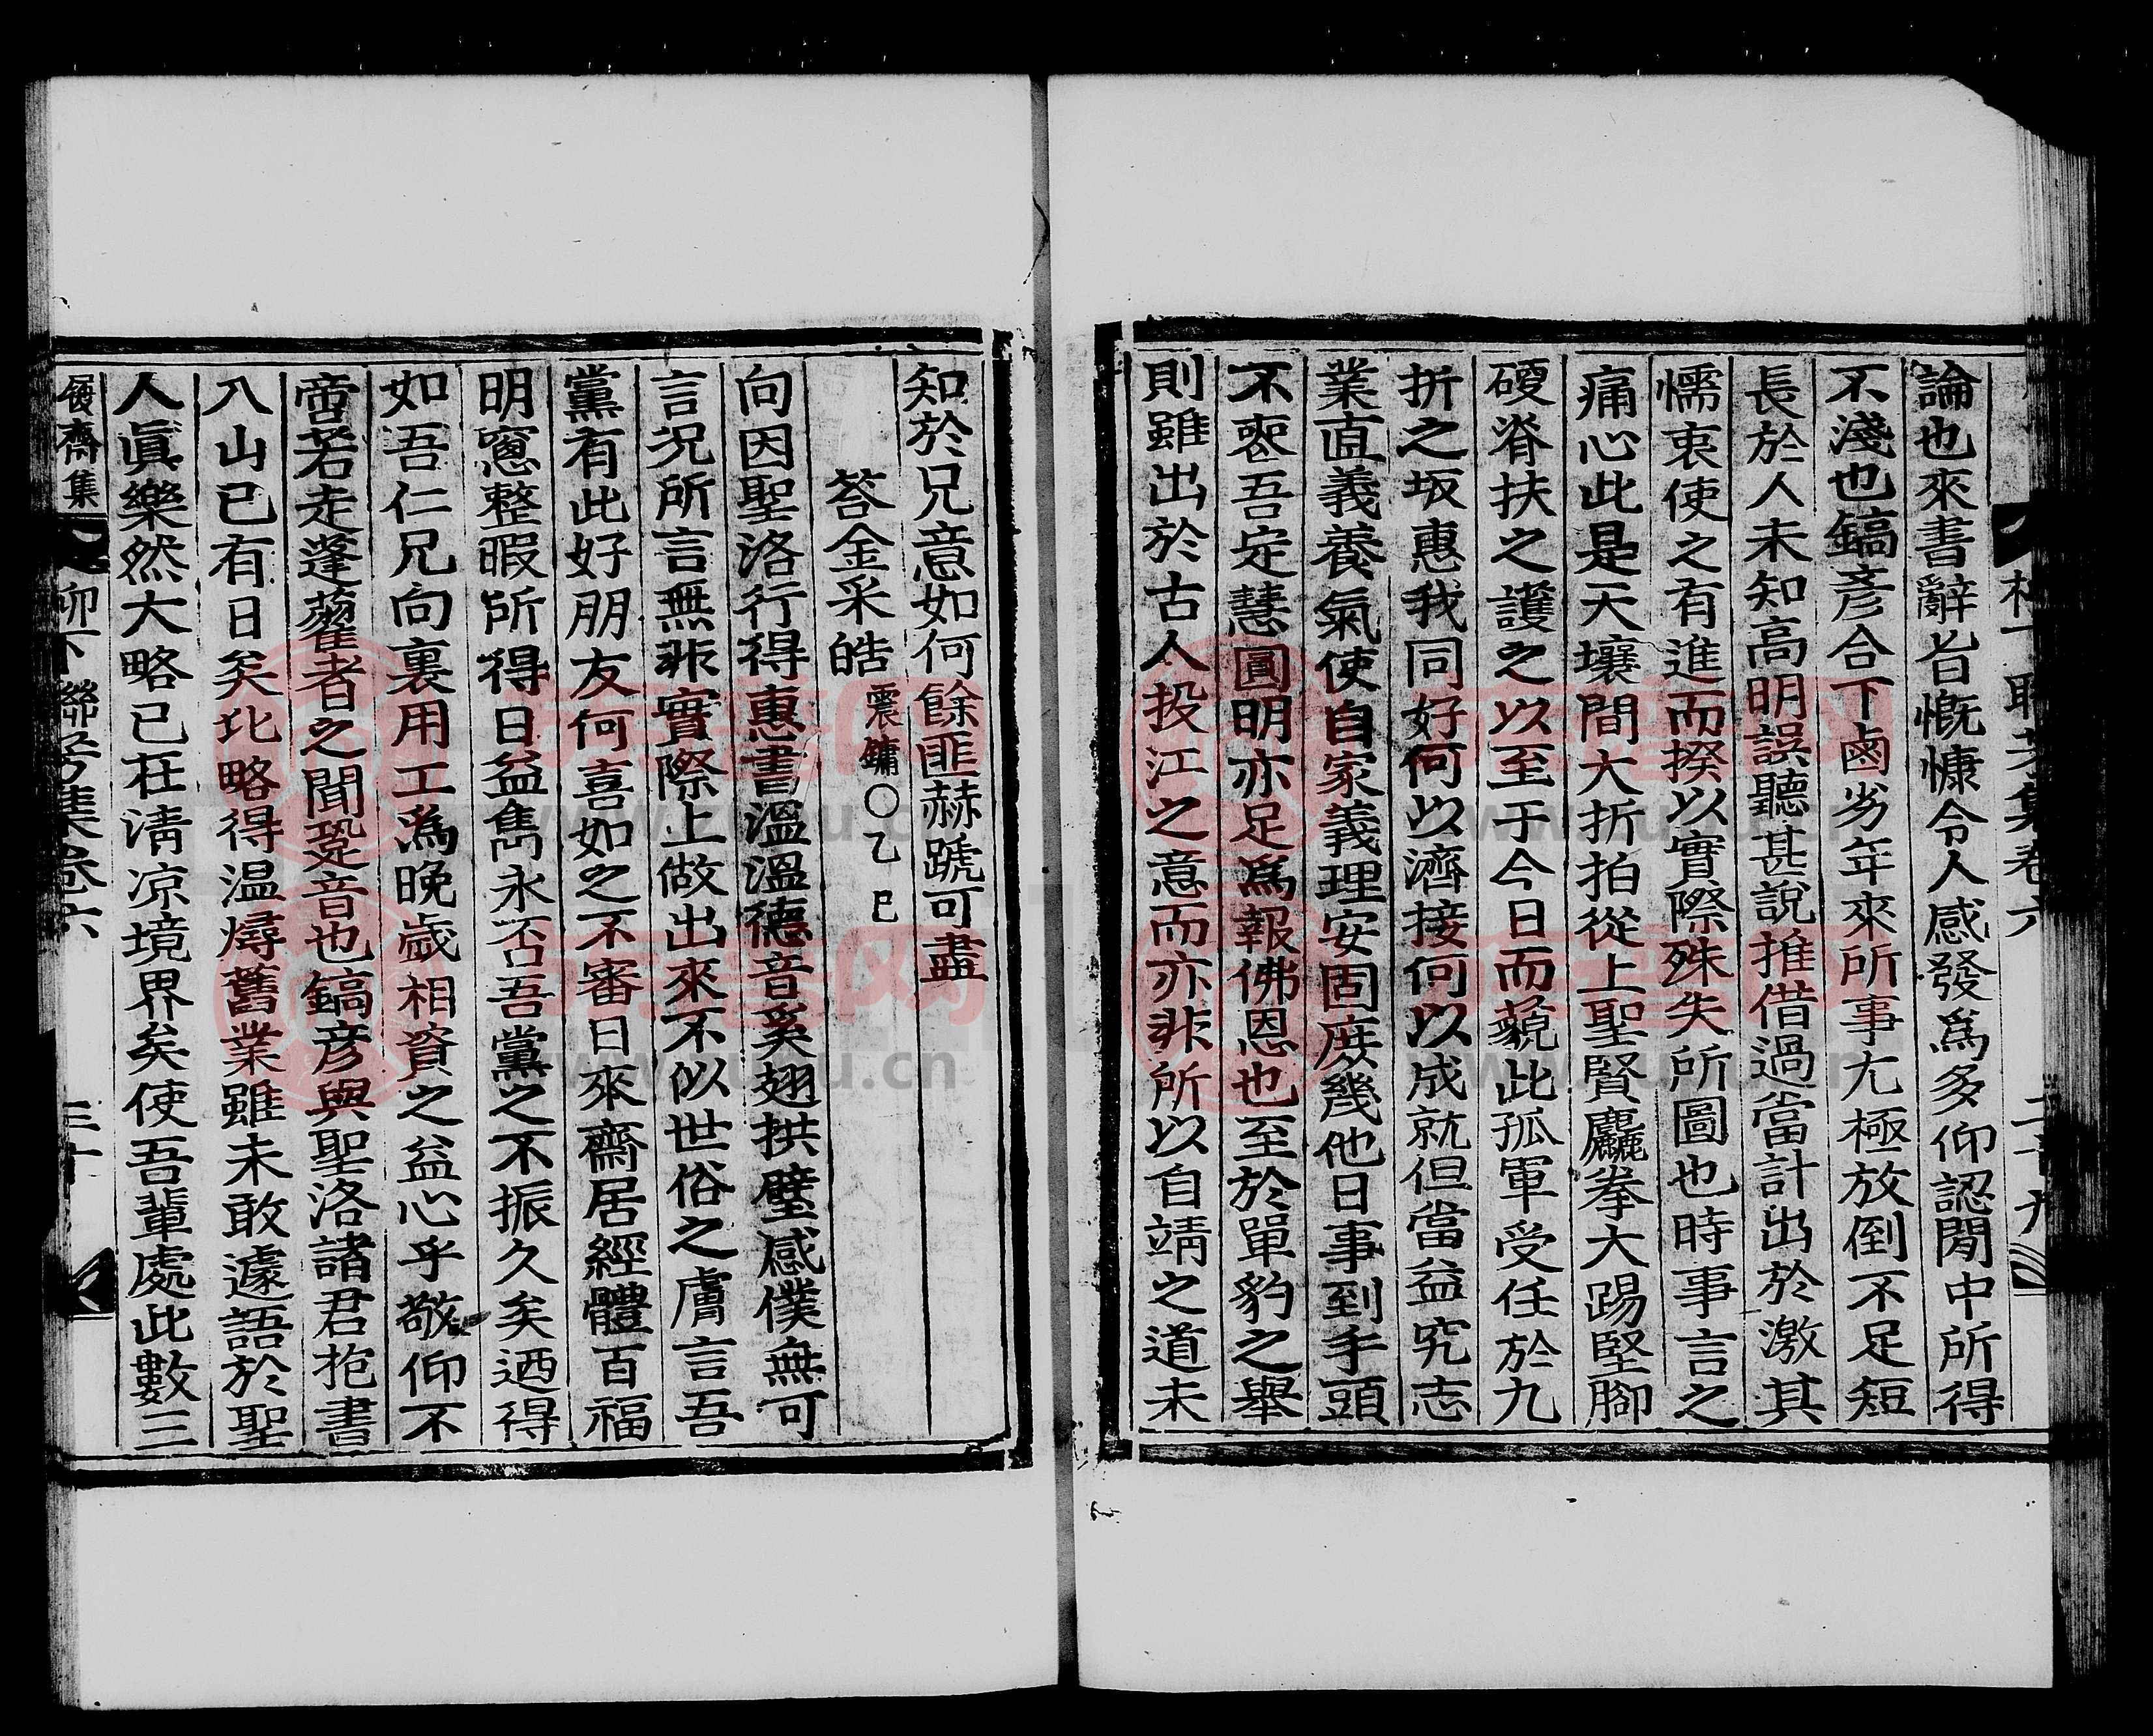 論也來書辭旨慨慷令人感發爲多仰認閒中所得
不淺也鎬彦合下鹵劣年來所事尢極放倒不足短
長於人未知高明誤聽甚說推借過當計出於激其
懦衷使之有進而揆以實際殊失所圖也時事言之
痛心此是天壤間大折拍從上聖賢麤拳大踢堅脚
硬脊扶之護之以至于今日而藐此孤軍受任於九
折之坂惠我同好何以濟接何以成就但當益究志
業直義養氣使自家義理安固庶幾他日事到手頭
不喪吾定慧圓明亦足爲報佛恩也至於單豹之擧
則雖出於古人投江之意而亦非所以自靖之道未
知於兄意如何餘匪赫蹏可盡
答金采皓震鏞○乙巳
向因聖洛行得惠書溫溫德音奚翅拱璧感僕無可
言況所言無非實際上做出來不似世俗之膚言吾
黨有此好朋友何喜如之不審日來齋居經體百福
明窻整暇所得日益雋永否吾黨之不振久矣迺得
如吾仁兄向裏用工爲晩歲相資之益心乎敬仰不
啻若走蓬藋者之聞跫音也鎬彦與聖洛諸君抱書
入山已有日矣此略得温燖舊業雖未敢遽語於聖
人眞樂然大略已在淸凉境界矣使吾輩處此數三
齋集
卷六
三十